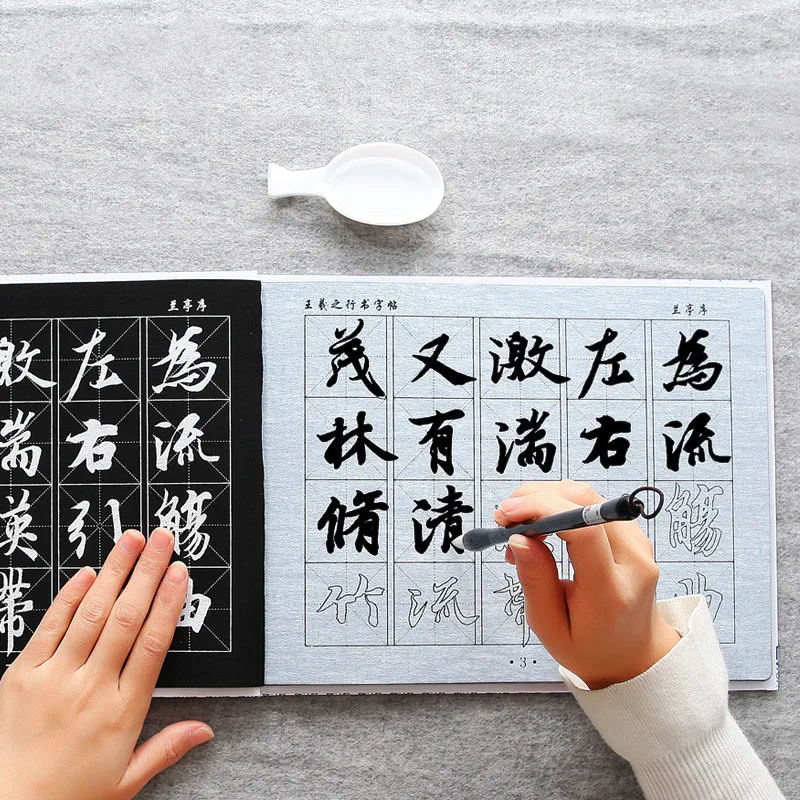 兰亭序
激湍暎帶
左右引
為流觴曲
王羲之行书字帖
兰亭序
茂林脩竹
又有清流
激湍帶
左右
為流觴曲
·3·